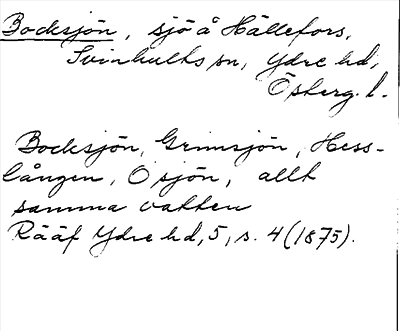 Bocksjön, sjö å Hällefors,
Svinhults sn, Ydre hd,
Österg. l.
Bocksjön, Grimsjön, Hess-
lången, Ö sjön, allt
samma vatten
Rääf Ydre hd, 5, s. 4 (1875).